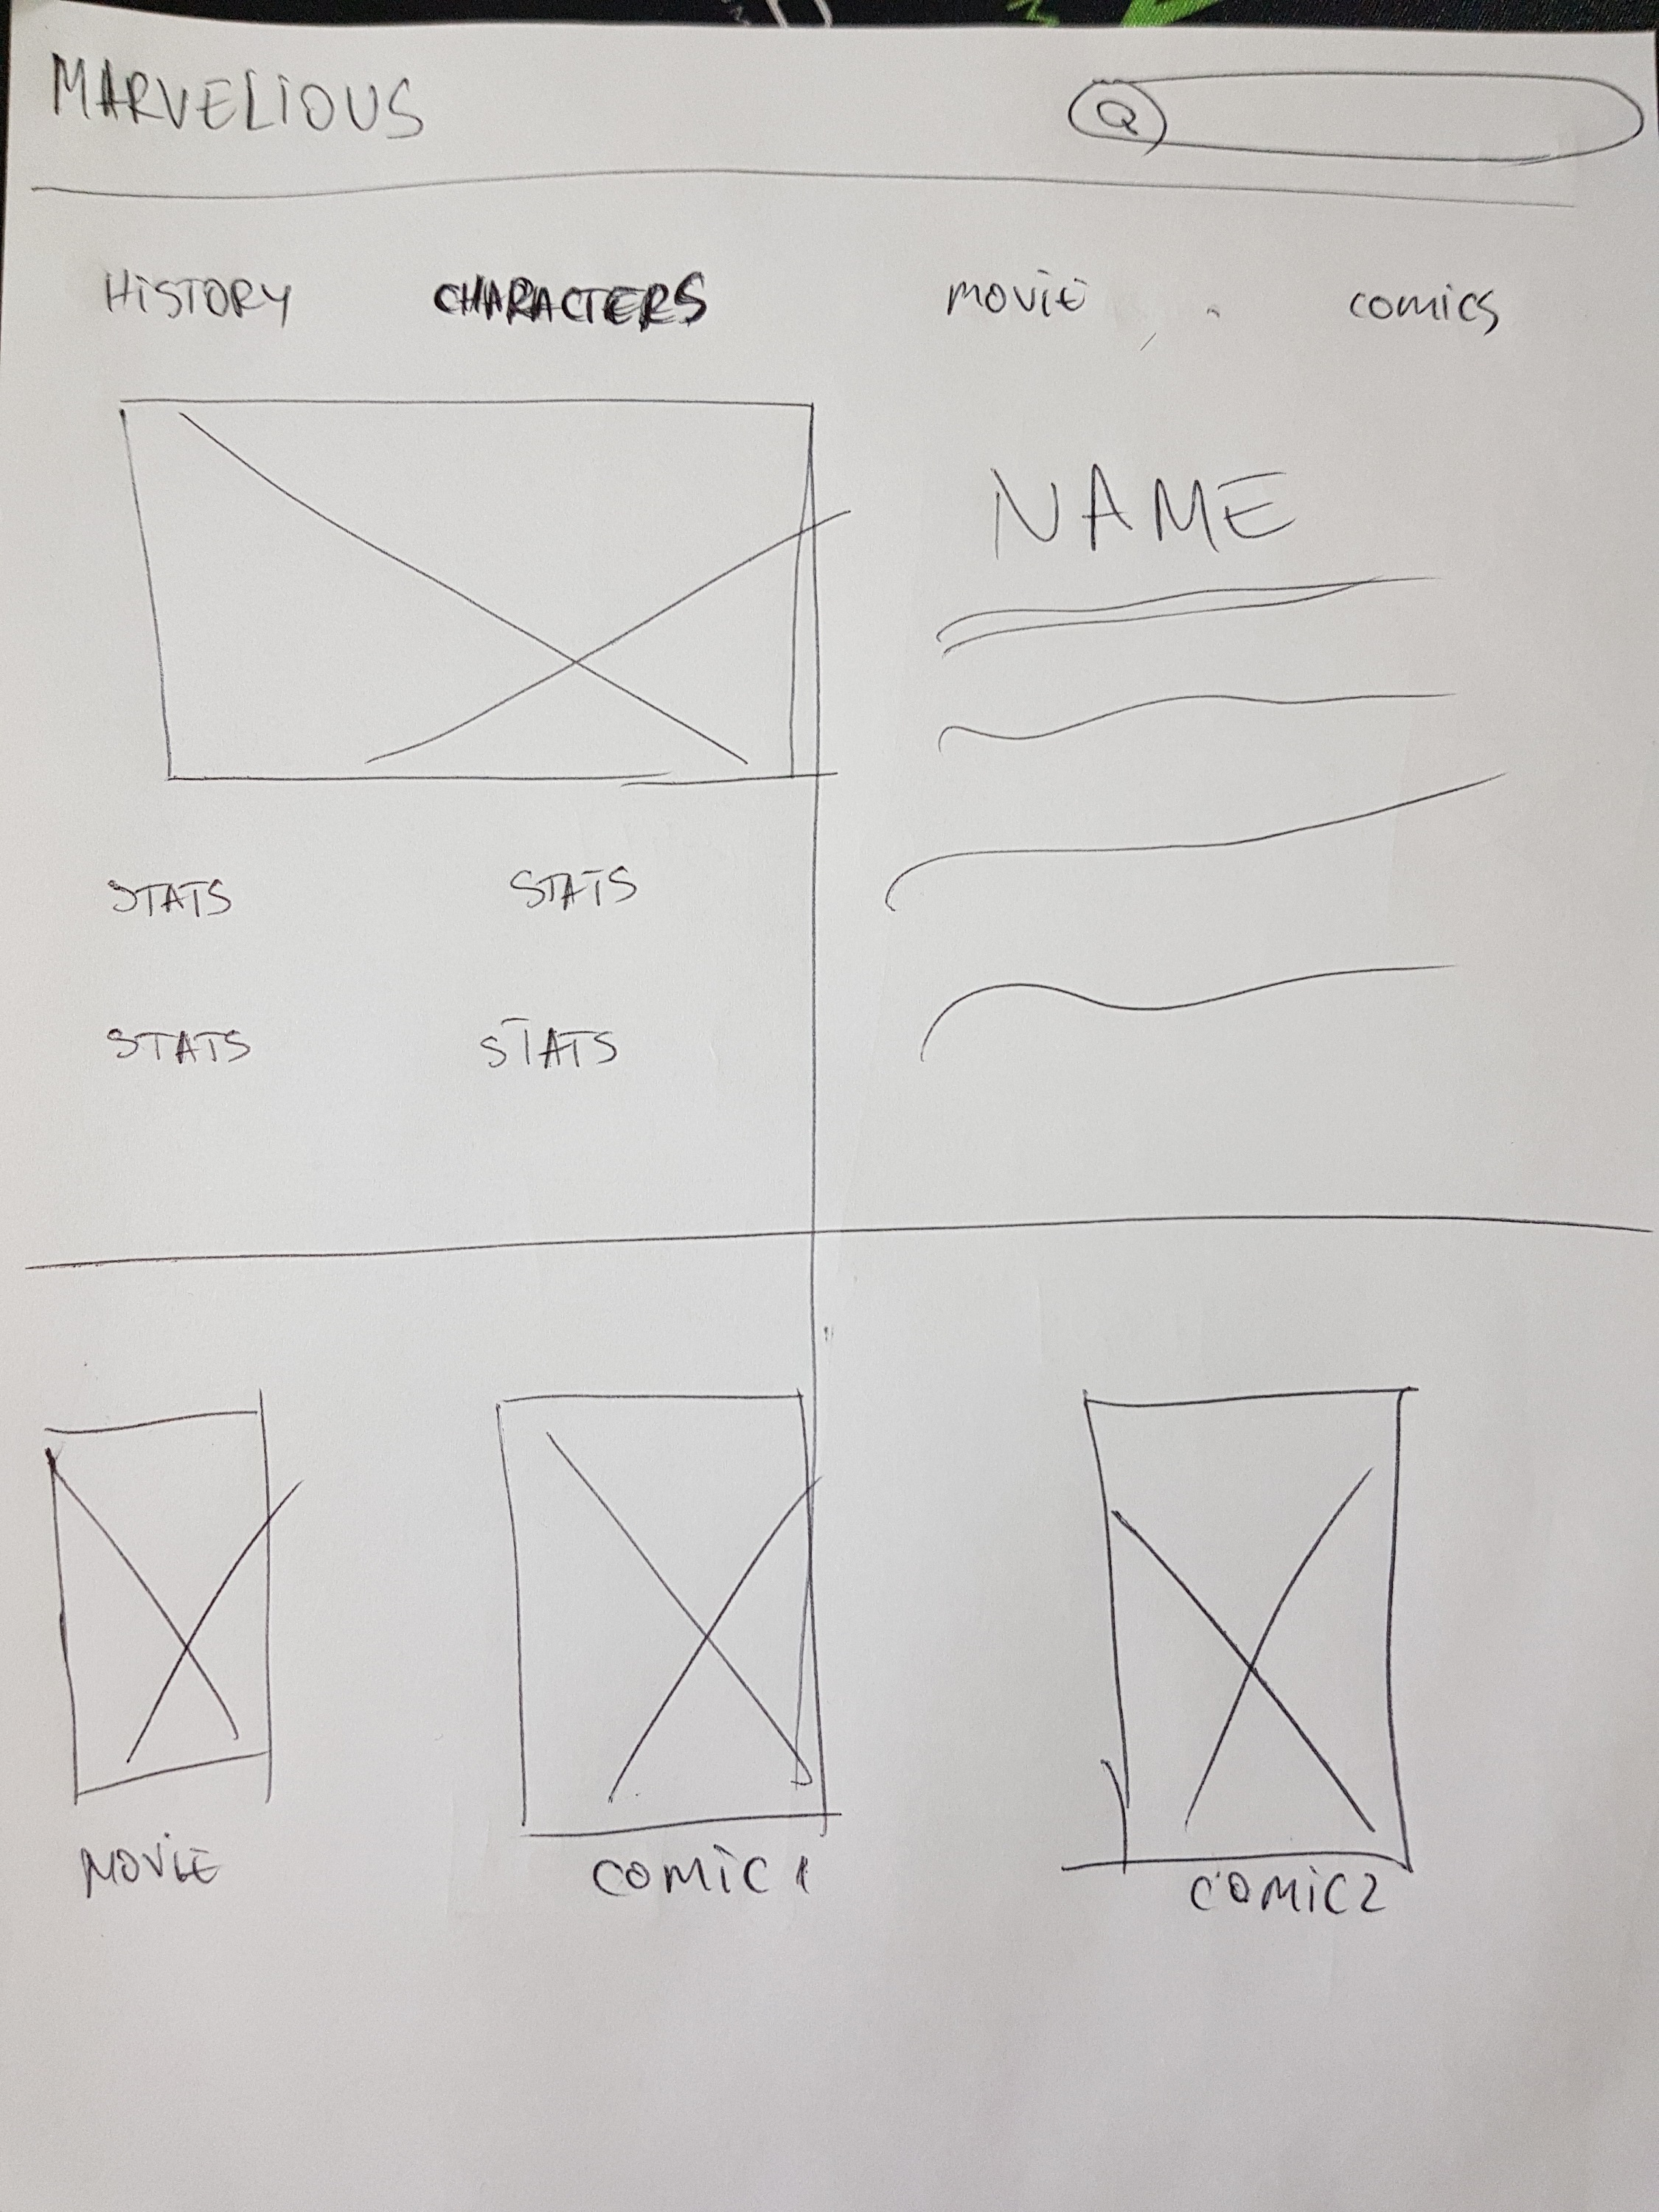 MARVELIOUS
HISTORY CHARACTERS MOVIE COMICS
NAME
STATS STATS
STATS STATS
MOVIE COMIC1 COMIC2